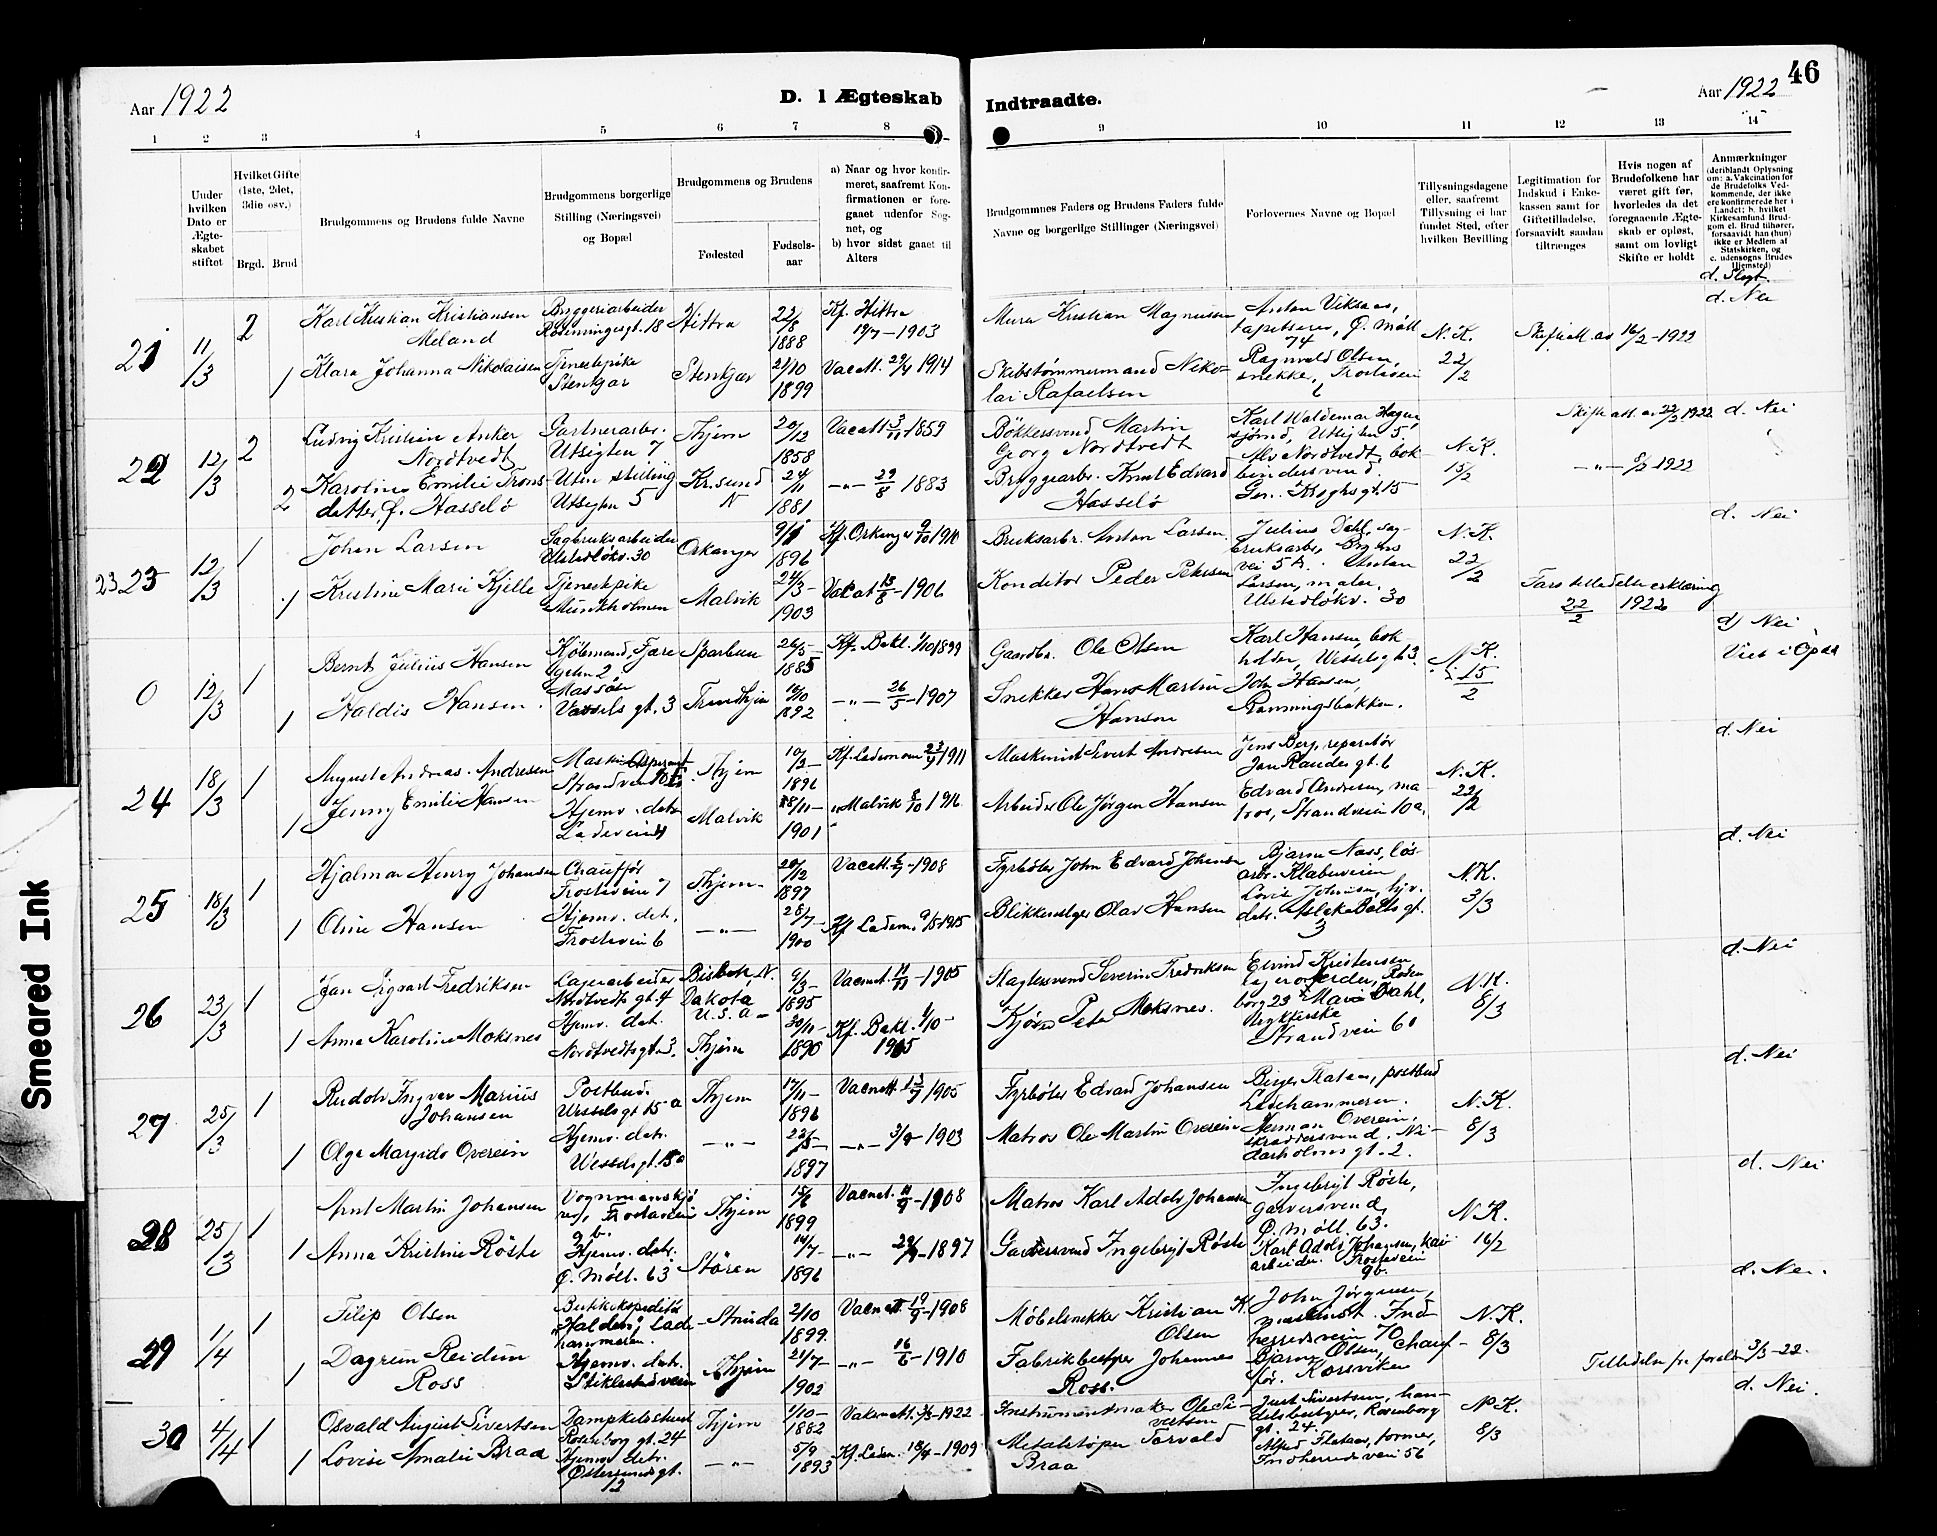 46
Aar 1922
D. I Ægteskab
Indtraadte.
Aar 1922
1 2 3 4 5 6 7 8 9 10 11 12 13 14
Under hvilken Dato er Ægteskabet stiftet
Hvilket Gifte (1ste, 2det, 3die osv.)
Brgd. Brud
Brudgommens og Brudens fulde Navne
Brudgommens borgerlige Stilling (Næringsvei) og Bopæl
Brudgommens og Brudens
Fødested
Fødsels-aar
a) Naar og hvor konfirmeret, saafremt Konfirmationen er foregaaet udenfor Sognet, og
b) hvor sidst gaaet til Alters
Brudgommes Faders og Brudens Faders fulde Navne og borgerlige Stillinger (Næringsvei)
Forlovernes Navne og Bopæl
Tillysningsdagene eller, saafremt Tillysning ei har fundet Sted, efter hvilken Bevilling
Legitimation for Indskud i Enkekassen samt for Giftetilladelse, forsaavidt saadan tiltrænges
Hvis nogen af Brudefolkene har været gift før, hvorledes da det foregaaende Ægteskab er opløst, samt om lovligt Skifte er holdt
Anmærkninger
(deriblandt Oplysning om: a. Vakcination for de Brudefolks Vedkommende, der ikke ere konfirmerede her i Landet; b. hvilket Kirkesamfund Brudgom el. Brud tilhører, forsaavidt han (hun) ikke er Medlem af Statskirken, og c. udensogns Brudes Hjemsted)
d. Slegt
21 11/3 2 Karl Kristian Kristiansen Meland Bryggeriarbeider Rosenningesgt. 18 Hittra 22/8 1888 Kf. Hittra 12/7 - 1903 Murer Kristian Magnussen Anton Viksaas, tapetserer, Ø. Møll. 74 N.K. 22/2 Skifteatt. av 16/2 - 1922 d. Nei
1 Klara Johanna Nikolaisen Tjenestepike Stenkjær Stenkjær 21/10 1899 Vacatt. 29/4 1914 Skibstømmermand Nikolai Rafaelsen Ragnvald Olsen, snekker, Frostaveien 6
22 12/3 2 Ludvig Kristian Anker Nordtvedt Gartnerarbr. Utsigten 7 Thjem 20/12 1858 Vacatt 3/11 - 1859 Bøkkersvend Martin Georg Nordtvedt Karl Waldemar Hagen, sjømd, Utsigten 5. N.K. 15/2 Skifteatt. av 22/2 1922 d. Nei
2 Karoline Emilie Tronsdatter, f. Hasselø Uten stilling Utsigten 5 Kr.sund N 24/11 1881 -"- 29/8 1883 Bryggearbr. Knut Edvard Hasselø Alv Nordtvedt, bokbindersvend Gen. Kroghsgt. 15 -"- 8/2 1922
23 23 12/3 1 Johan Larsen Sagbruksarbeider Ulstadløkv. 30 Orkanger 9/1 1896 Kf. Orkanger 9/10 1910 Bruksarbr. Anton Larsen Julius Dahl, sagbruksarbr, Bygns vei 5 A. N.K. 22/2 d. Nei
1 Kristine Marie Kjelle Tjenestepike Munkholmen Malvik 24/3 - 1903 Vakcat 13/8 - 1906 Konditor Peder Petersen Anton Larsen, maler. Ulstadløkv. 30 Fars tilladelse erklæring 22/2 1922
0 12/3 1 Bernt Julius Hansen Købmand, Fjæregaten 2 Sparbuen 26/5 - 1885 Kf. Bakl. 1/10 1899 Gaardbr. Ole Olsen Karl Hansen, bokholder, Wesselsgt 3. N.K. 15/2 d) Nei
1 Haldis Hansen Massøse Vesselsgt. 3 Trondhjem 10/10 1892 -"- 26/5 - 1907 Snekker Hans Martin Hansen John Hansen, Ronningsbakken.
24 18/3 1 August Andreas Andresen Maskinaspirant Strandveien 10 Thjem 10/2 - 1896 Kf. Ladem 23/4 1911 Maskinist Sivert Andresen Jens Berg, reparatør Jan Raudes gt. 6 N.K. 22/2 d. Nei
1 Jenny Emilie Hansen Hjemv. dat. Ladeveien Malvik 18/11 - 1901 " Malvik 8/10 1916 Arbeider Ole Jørgen Hansen Edvard Andresen, matros, Strandveien 10 a.
25 18/3 1 Hjalmar Henry Johansen Chauffør Frostaveien 7 Thjem - 20/12 1897 Vacatt. - 1908 Fyrbøter John Edvard Johansen Bjarne Næss, løsarbr. Klæbuveien N.K. 3/3 d. Nei
1 Oline Hansen Hjemv. dat. Frostaveien 6 -"- 28/7 - 1900 Kf. Ladem. 9/5 1915 Blikkenslager Olav Hansen Lovise Johansen, hjv. datr. Aslak Bolts gt. 3
26 23/3 1 Jan Sigvart Fredriksen Lagerarbeider Nordtvedts gt. 4 Bisbek, N. Dakota U.S.A. 9/3 - 1895 Vacnat. 11/11 - 1905 Slagtersvend Severin Fredriksen Eivind Kristensen lagerarbeider, Rosenborg 23 N.K. 8/3 d. Nei
1 Anna Karoline Moksnes Hjemv. dat. Nordtvedtsgt. 3. Thjem 30/11 - 1890 Kf. Bakl. 1/10 - 1905 Kjøbm Peter Moksnes. Marie Dahl, strykerske Strandveien 60
27 25/3 1 Rudolv Ingvar Marius Johansen Postbud. Wesselsgt 15 a Thjem 17/11 - 1896 Vacnatt. 13/7 - 1905 Fyrbøter Edvard Johansen Birger Flataas, postbud Ladehammeren. N.K. 8/3 d. Nei
1 Olga Margido Overein Hjemv. dat. Wesselsgt. 15 a -"- 1897 -"- 3/9 - 1903 Matros Ole Martin Overein Herman Overein, skreddersvend, Nidarholms gt. 2.
28 25/3 1 Arnt Martin Johansen Vognmandskjører, Frostaveien 9 b. Thjem 15/6 1899 Vacnat. 11/9 - 1908 Matros Karl Adolv Johansen Ingebrigt Røste, garversvend, Ø. Møll. 63. N.K. 16/2 d. Nei
1 Anna Kristine Røste Hjemv. dat. Ø. Møll. 63 Støren 14/7 - 1896 -"- - 1897 Garversvend Ingebrigt Røste Karl Adolv Johansen, kaiarbeider. Frostaveien 9b.
29 1/4 1 Filip Olsen Butikekspeditør "Halden", Ladehammeren. Strinda 2/10 1899. Vacnatt. 19/9 - 1908 Møbelsnekker Kristian K. Olsen John Jørgensen, maskinist. Indherredsveien 70 N.K. 8/3 d. Nei.
1 Dagrun Reidun Ross Hjemv. dat. Stiklestadveien Thjem 21/7 - 1902 -"- 16/6 - 1910 Fabrikbestyrer Johannes Ross. Bjarne Olsen, chauffør. Korsviken Tilladelse fra forældre 3/3 - 22.
30 4/4 1 Osvald August Sivertsen Dampkelostuet Rosenborg gt. 24 Thjem 1/10 - 1882 Vakcnatt. 3/3 - 1922 Instrumentmaker Ole Sivertsen Just Sivertsen, handelsbestyrer, Rosenborg gt. 24. N.K. 8/3 d. Nei.
1 Lovise Amalie Braa Hjemv. datr. Østersundsgt. 12 -"- 5/9 1893 Kf. Ladem. 18/4 - 1909 Metalstøper Torvald Braa Alfred Flataas, former, Indherredsveien 56
Smeared Ink